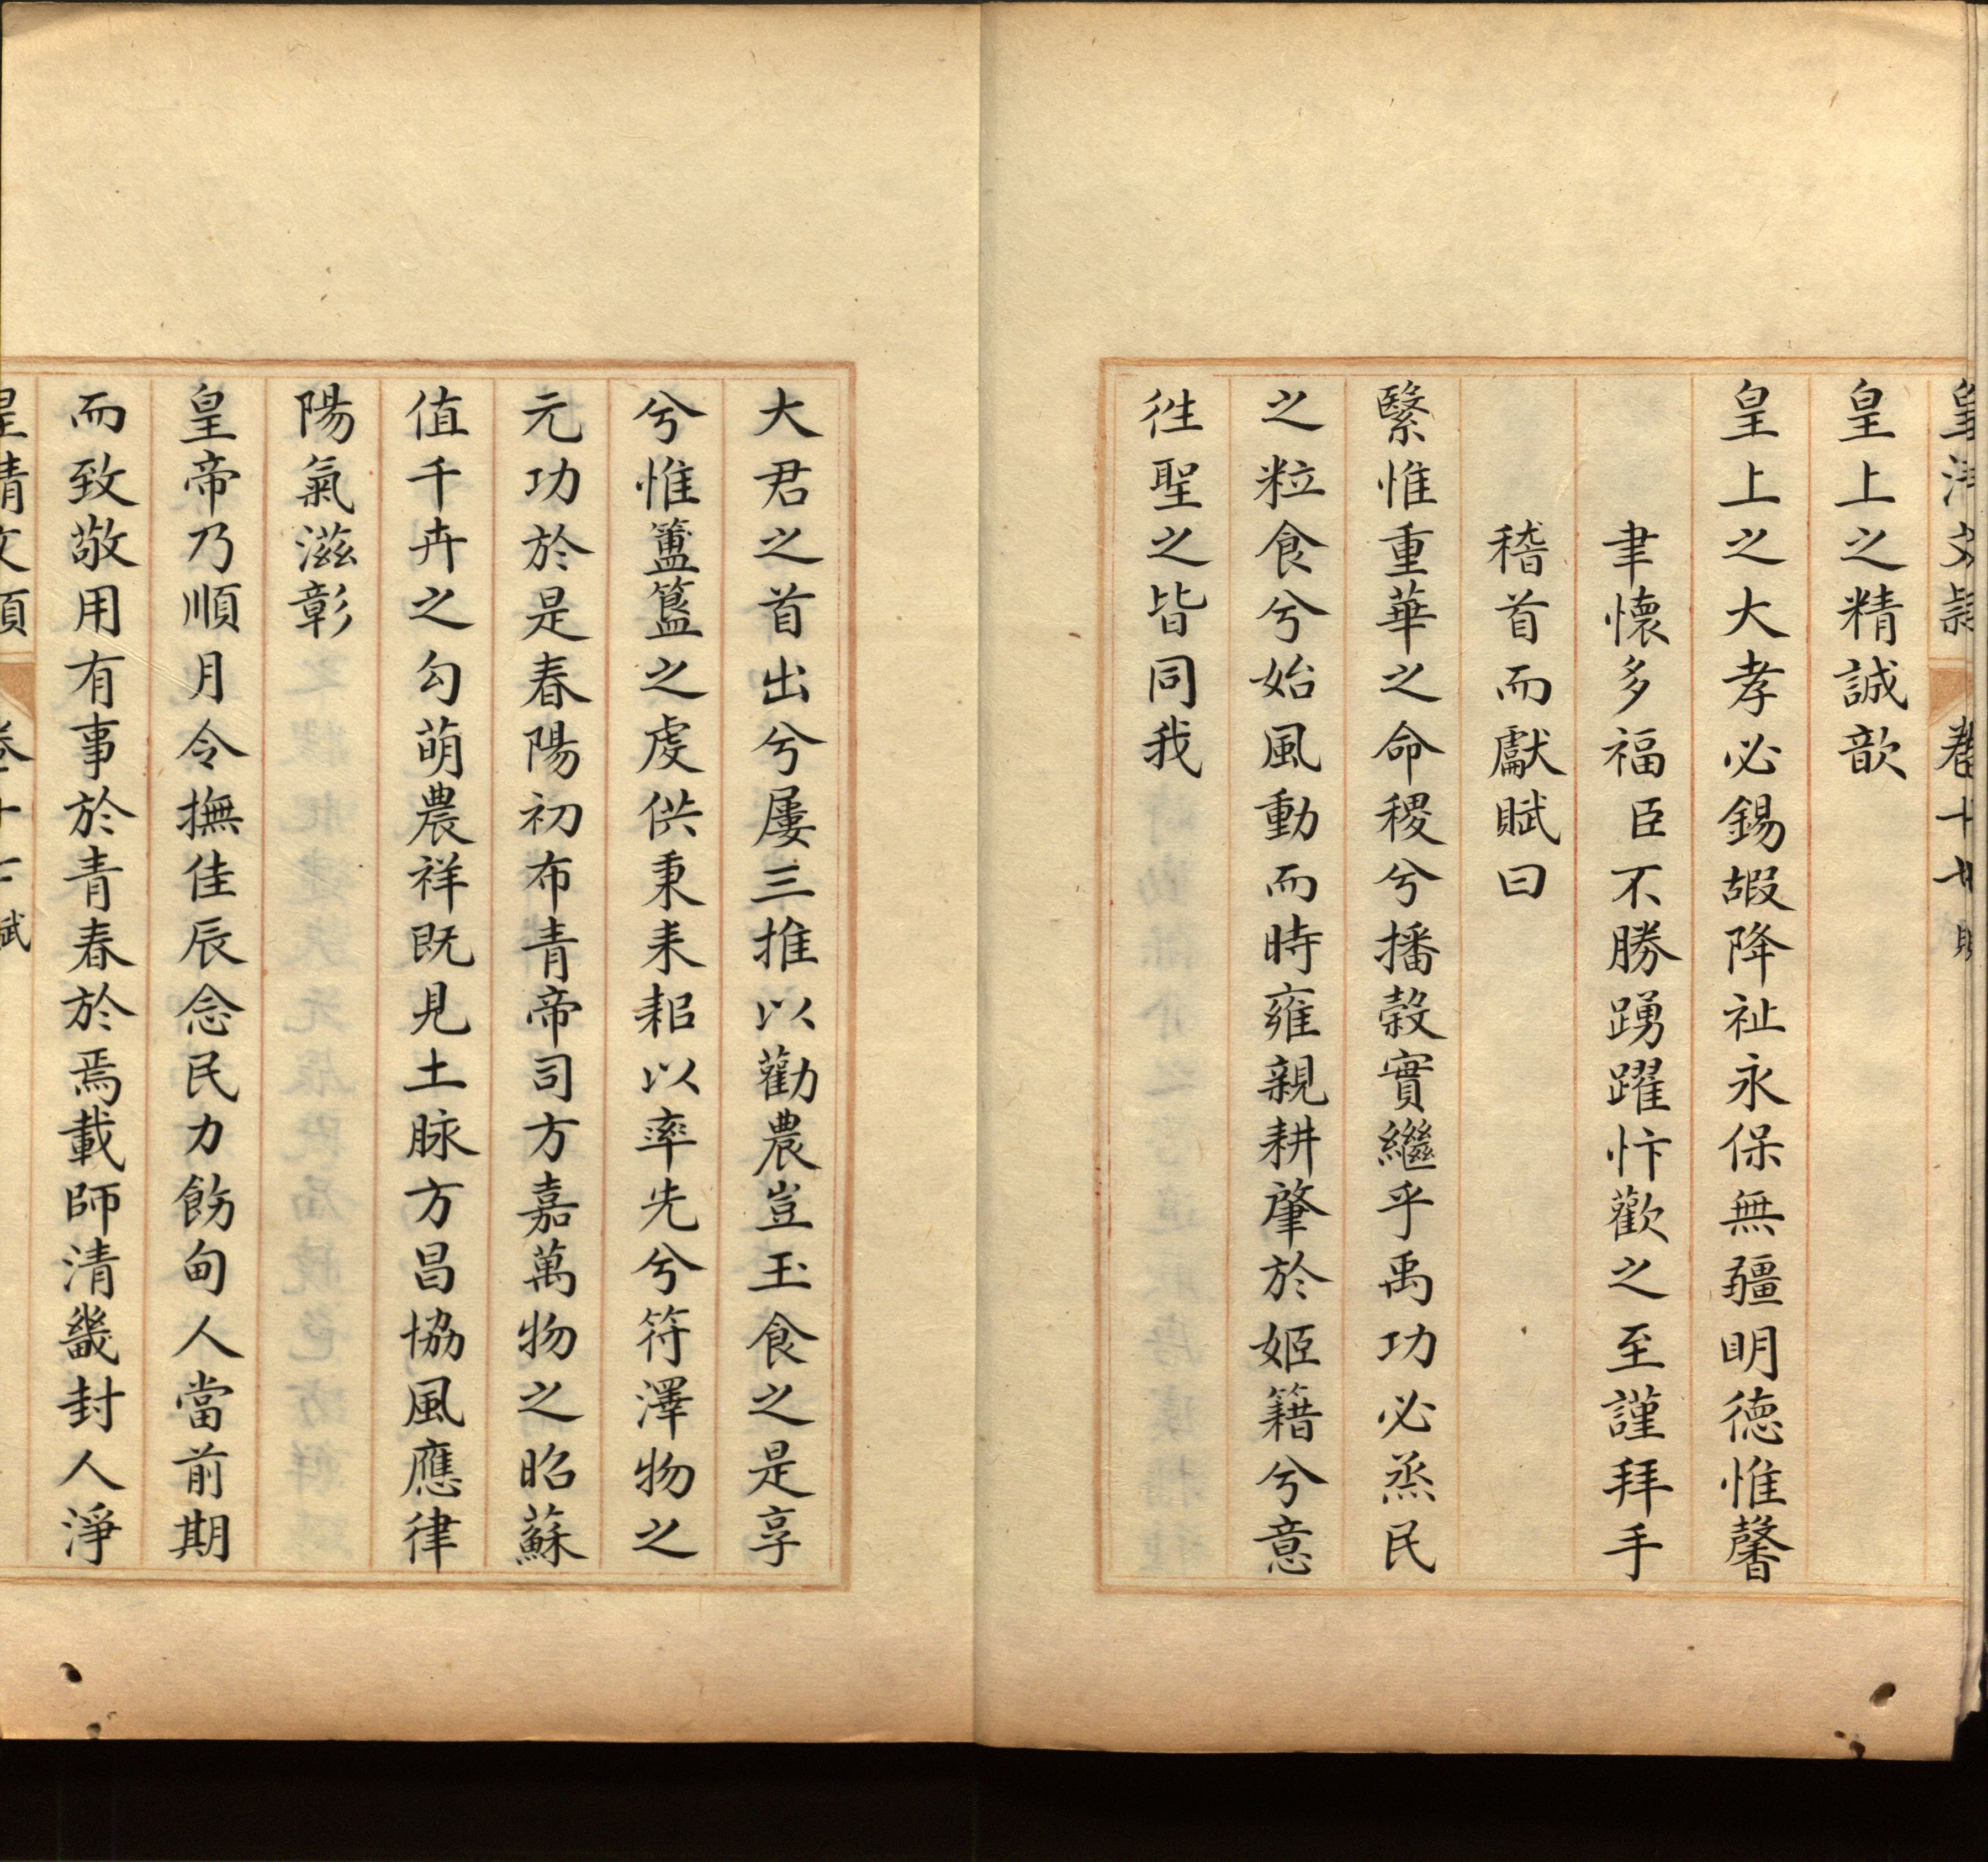 皇清文穎 卷十七 賦
皇上之精誠歆
皇上之大孝必錫嘏降祉永保無疆明德惟馨
聿懷多福臣不勝踴躍忭歡之至謹拜手
稽首而獻賦曰
繄惟重華之命稷兮播穀實繼乎禹功必烝民
之粒食兮始風動而時雍親耕肇於姬籍兮意
徃聖之皆同我
大君之首出兮屢三推以勸農豈玉食之是享
兮惟簠簋之虔供秉耒耜以率先兮符澤物之
元功於是春陽初布青帝司方嘉萬物之昭蘇
值千卉之勾萌農祥既見土脉方昌協風應律
陽氣滋彰
皇帝乃順月令撫佳辰念民力飭甸人當前期
而致敬用有事於青春於焉載師清畿封人淨
皇清文穎 卷十七 賦